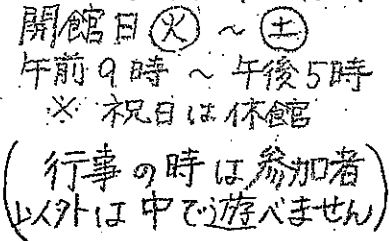 開館日 火 ～ 土
午前9時 ～ 午後5時
※ 祝日は休館
(行事の時は参加者
以外は中で遊べません)